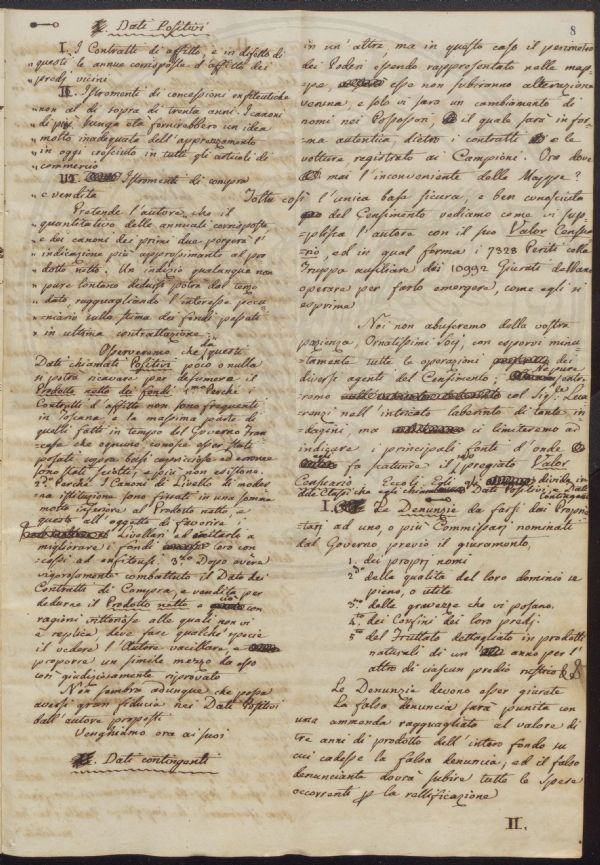 8
Dati Positivi
I. I Contratti di affitto, e in difetto di
" questi le annue corrisposte d'affitto dei
" predj vicini
II. Istromenti di concessioni enfiteutiche
" non al di sopra di trenta anni. I canoni
" di più lunga età fornirebbero un idea
" molto inadequata dell'apprezzamento
" in oggi cresciuto in tutti gli articoli di
" commercio
III. Istromenti di compra
" e vendita
Pretende l'autore, che il
" quantitativo delle annuali corrisposte,
" e dei canoni dei primi due porgerà l'
" indicazione più approssimante al pro
" dotto netto. Un indizio qualunque non
" pure lontano dedursi potrà dal terzo
" dato ragguagliando l'interesse pecu
" niario sulla stima dei fondi passati
" in ultima contrattazione
Osserveremo che da questi
Dati chiamati Positivi poco o nulla
si potrà ricavare per desumere il
Prodotto netto dei fondi. 1mo Perchè i
Contratti d'affitto non sono frequenti
in Toscana, e la massima parte di
quelli fatti in tempo del Governo Fran
cese che ognuno conosce esser stati
postati sopra basi capricciose ed erronee
sono stati sciolti, e più non esistono.
2do Perchè I Canoni di Livello di moder
na istituzione sono fissati in una somma
molto inferiore al Prodotto netto, e
questo all'oggetto di favorire i
Livellari ed eccitarli a
migliorare i fondi loro con
cessi ad enfiteusi. 3zo Dopo avere
vigorosamente combattuto il Dato dei
Contratti di Compra, e vendita per
dedurne il Prodotto netto e ciò con
ragioni vittoriose alle quali non vi
è replica, deve fare qualche specie
il vedere l'Autore vacillare, e
proporre un simile mezzo da esso
così giudiziosamente riprovato
Non sembra adunque che possa
aversi gran fiducia nei Dati Positivi
dall'autore proposti
Venghiamo ora ai suoi
Dati contingenti
in un'altra, ma in questo caso il perimetro
dei Poderi essendo rappresentato nelle map
pe, esse non subiranno alterazione
veruna, e solo vi sarà un cambiamento di
nomi nei Possessori, il quale sarà in for
ma autentica, dietro i contratti e le
volture registrato ai Campioni. Ora dove
è mai l'inconveniente delle Mappe?
Tolta così l'unica base sicura, e ben conosciuta
del Censimento vediamo come vi sup
plisca l'autore con il suo Valor Censua
rio, ed in qual forma i 7328 Periti colla
Truppa ausiliare dei 10992 Giurati debbano
operare per farlo emergere, come egli si
esprime
Noi non abuseremo della vostra
pazienza, Ornatissimi Socj, con esporvi minu
tamente tutte le operazioni dei
diversi agenti del Censimento; Ne pure entre
remo col Sig. Lau
renzi nell'intricato laberinto di tante in
dagini, ma ci limiteremo ad
indicare i principali fonti d'onde
fa scaturire il suo pregiato Valor
Censuario Eccoli. Egli gli divide in
due Classi che egli chiama Dati Positivi, e Dati
Contingenti
I. Le Denunzie da farsi dai Proprie
tarj ad uno, o più Commissari nominati
dal Governo, previo il giuramento,
1. dei proprj nomi
2do della qualità del loro dominio se
pieno, o utile
3zo delle gravezze che vi posano.
4to dei Confini dei loro predj.
5to del Fruttato dettagliato in prodotti
naturali di un' anno per l'
altro di ciascun predio rustico
Le Denunzie devono esser giurate
La falsa denuncia sarà punita con
una ammenda ragguagliata al valore di
tre anni di prodotto dell'intero fondo su
cui cadesse la falsa denuncia, ed il falso
denunciante dovrà subire tutte le spese
occorrenti per la rettificazione
II.